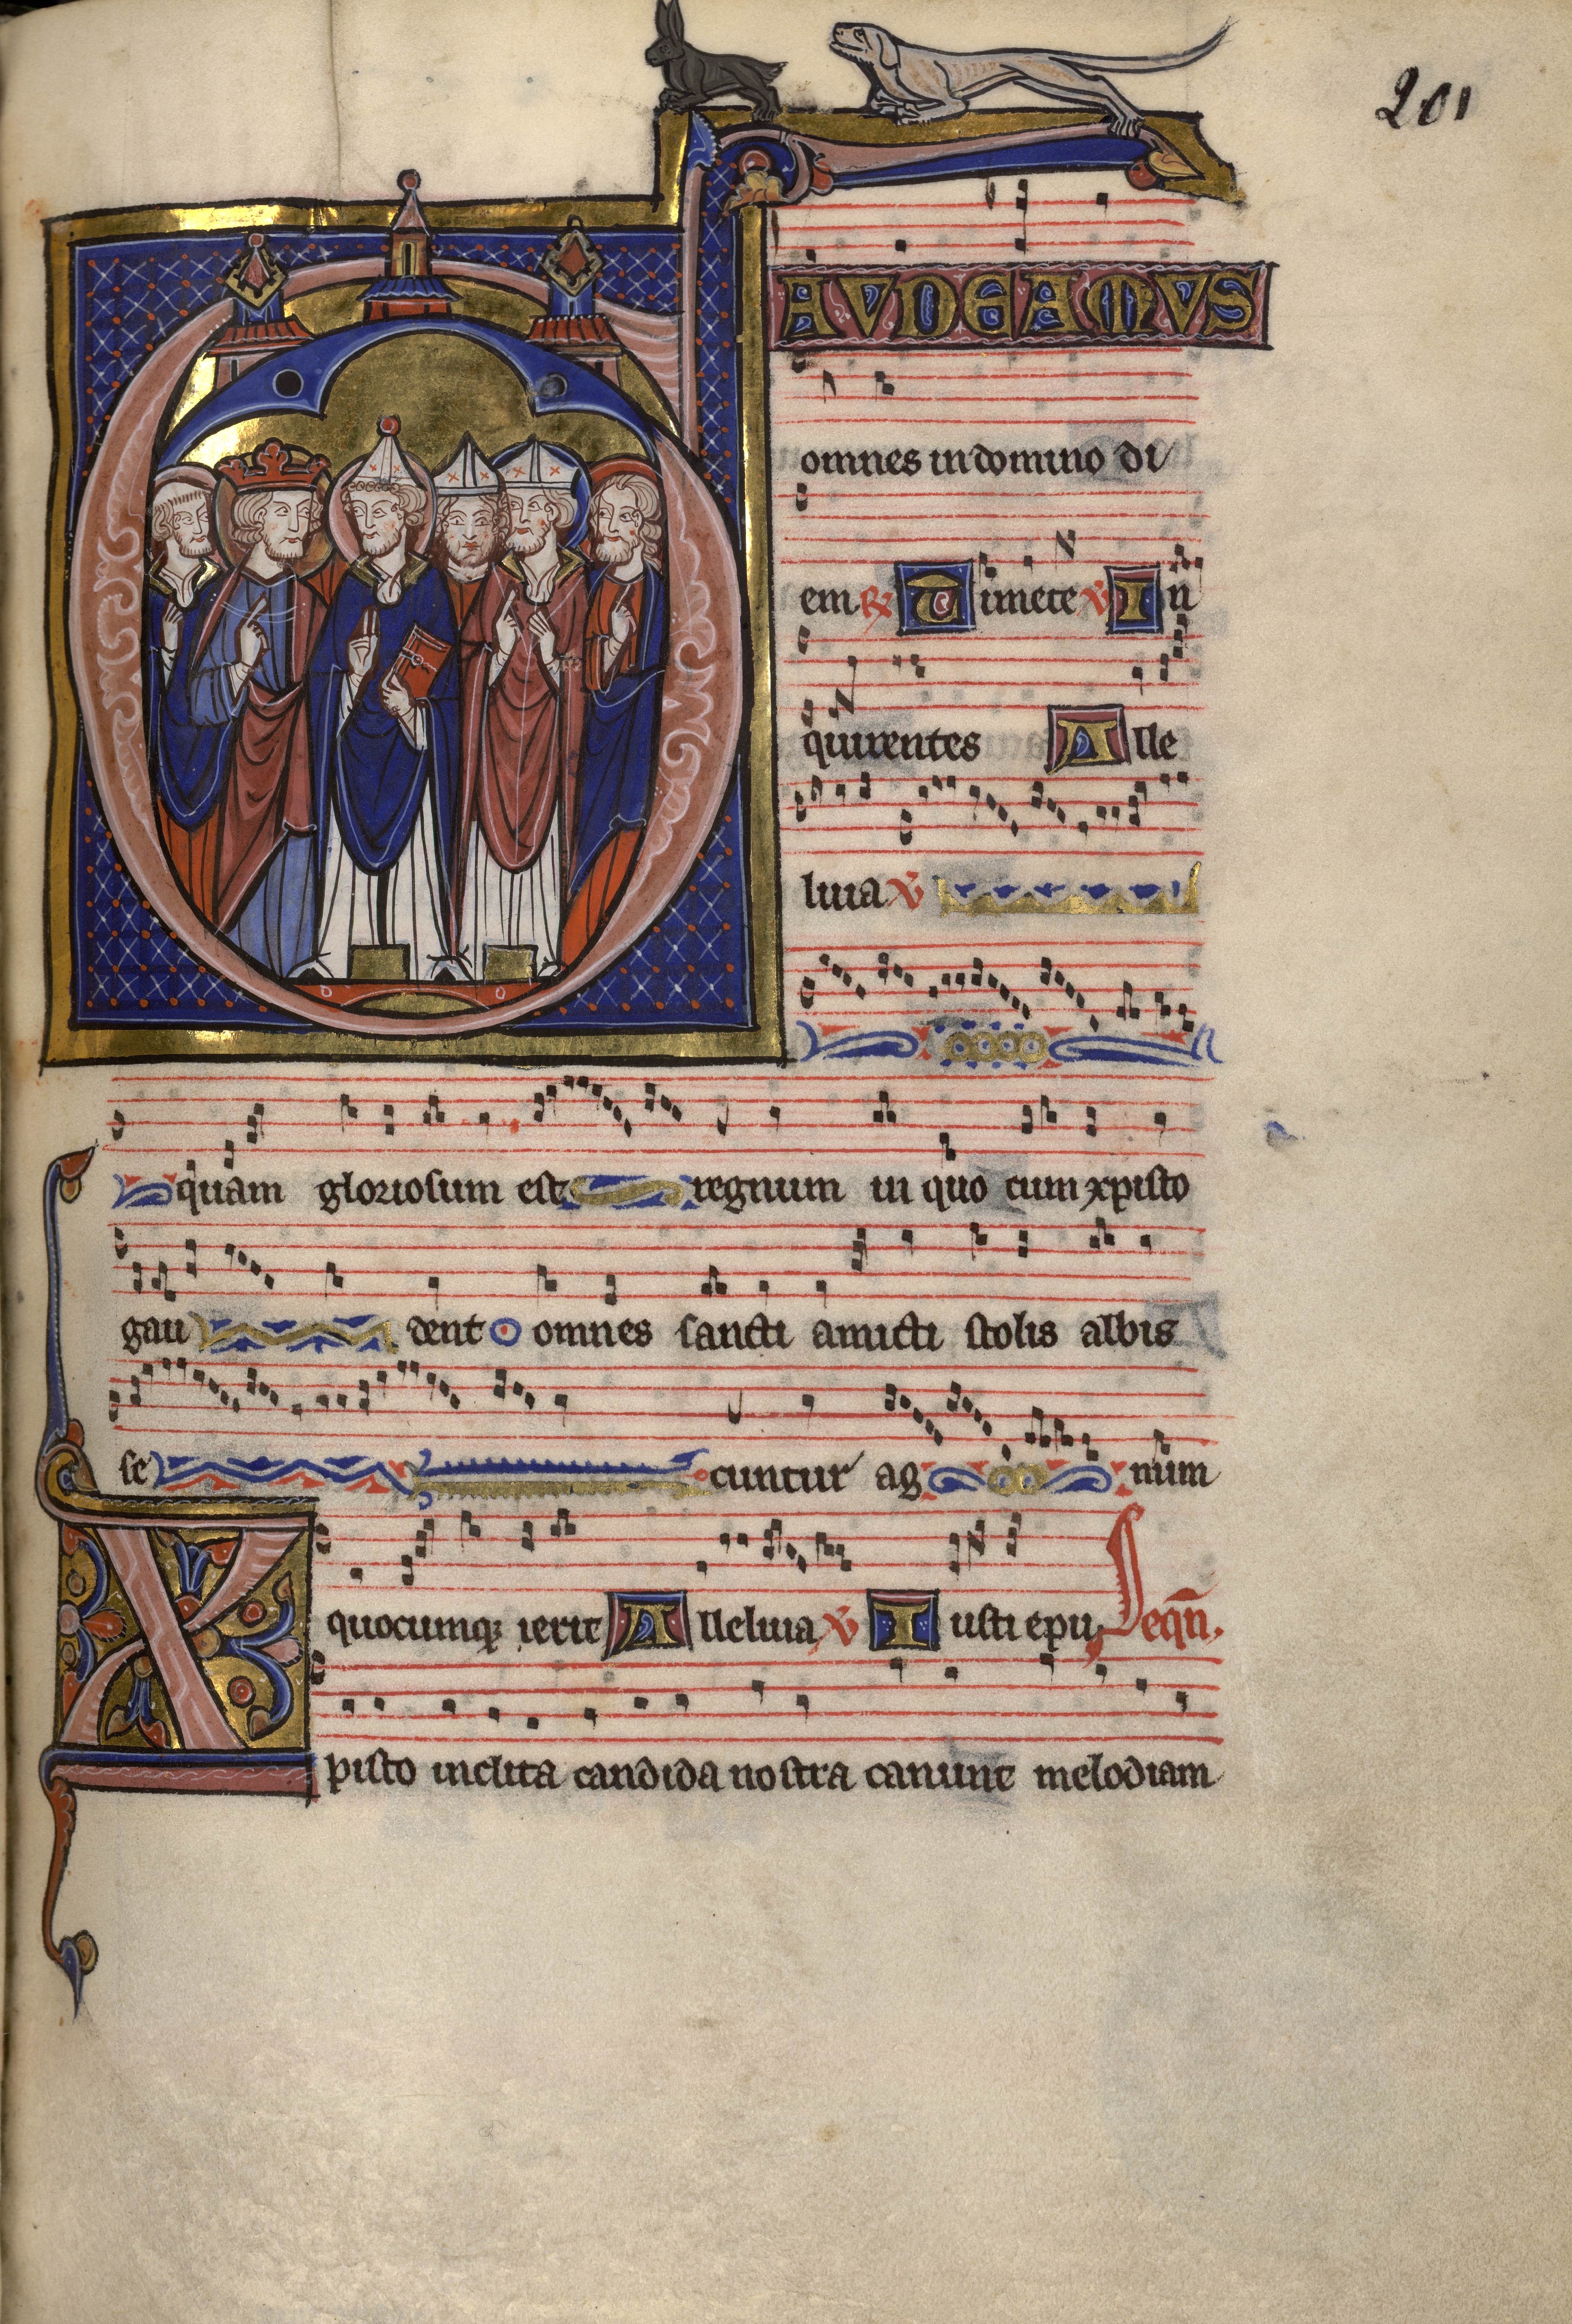 201
GAVDEAMVS
omnes in domino di
em. ℟ Timete ℣ In
quirentes Alle
luia ℣
O quam gloriosum est regnum in quo cum xpisto
gau dent omnes sancti amicti stolis albis
se cuntur ag num
quocumqꝫ ierit Alleluia ℣ Iusti epu. Seqn̄.
Xpisto inclita candida nostra canunt melodiam